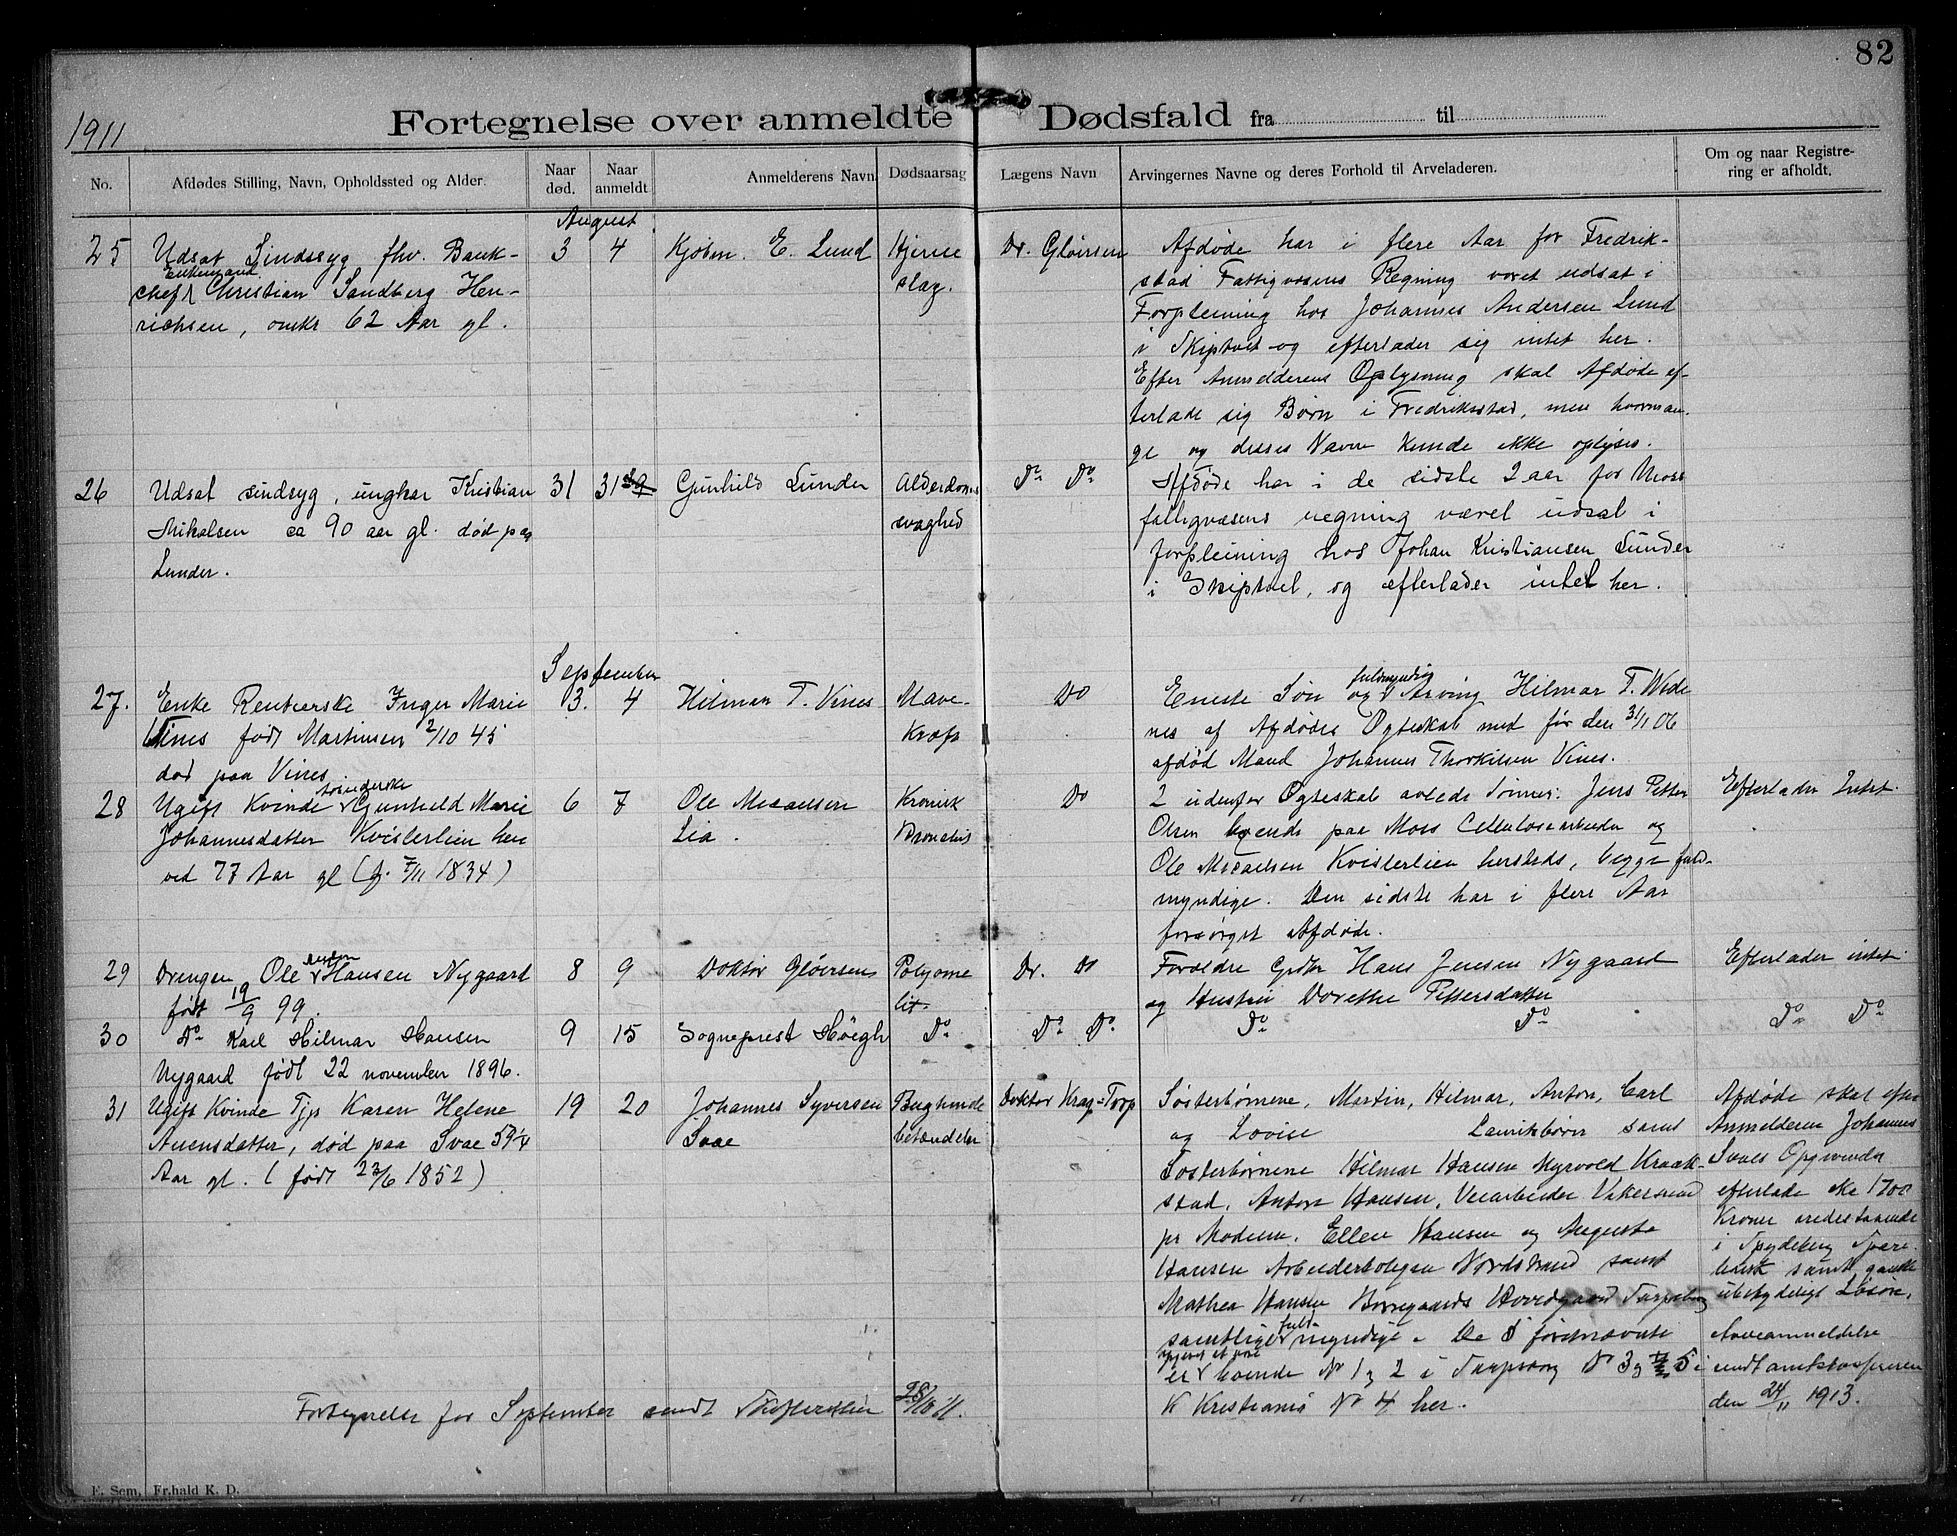 82
1911
Fortegnelse over anmeldte Dødsfald fra til
No.
Afdødes Stilling, Navn, Opholdssted og Alder.
Naar død.
Naar anmeldt
Anmelderens Navn
Dødsaarsag
Lægens Navn
Arvingernes Navne og deres Forhold til Arveladeren.
Om og naar Registre-
ring er afholdt.
August
25
Udsat Sindssyg fhv. Bank-
Enkemand
chef Christian Sandberg Hen-
richsen, omkr 62 Aar gl.
3 4
Kjøbm. E. Lund
Hjerte
slag.
Dr. Gløersen
Afdøde har i flere Aar for Fredrik-
stad Fattigvæsens Regning været udsat i
Forpleining hos Johannes Andersen Lund
i Skiptvet og efterlader sig intet her.
Efter Anmelderens Oplysning skal Afdøde ef-
terlade sig Børn i Fredriksstad, men hvorman-
ge og disses Navne kunde ikke oplyses.
26
Udsat sindsyg, ungkar Kristian
Mikalsen ca 90 aar gl. død paa
Lunder.
31 31
Gunhild Lunder
Alderdoms
svaghed
Do Do
Afdøde har i de sidste 2 aar for Moss
fattigvæsens regning været udsat i
forpleining hos Johan Kristiansen Lunder
i Skiptvet, og efterlader intet her.
September
27.
Enke Rentierske Inger Marie
Vines født Martinsen 2/10 45
død paa Vines
3. 4
Hilmar T. Vines
Mave-
kræft
Do
fuldmyndig
Eneste Søn og Arving Hilmar T. Vi
nes af Afdødes Ægteskab med før den 31/1 06
afdød Mand Johannes Thorkilsen Vines.
28
Ugift Kvinde Gunhild Marie
Johannesdatter Kvisterlien hen
ved 77 Aar gl (f. 7/11 1834)
6 7
Ole Micaelsen
Lia.
Kronisk
Bronchit
Do
2 udenfor Ægteskab avlede Sønner: Jens Petter
Olsen boende paa Moss Cellulosearbeider og
Ole Micaelsen Kvisterlien hersteds, begge fuld-
myndige. Den sidste har i flere Aar
forsørget Afdøde.
Efterlader Intet.
29
Drengen Ole Hansen Nygaard
født 19/9 99.
8 9
Doktor Gløersen
Polyome
lit.
Dr. Do
Forældre Grdbr Hans Jensen Nygaard
og Hustru Dorethe Pettersdatter
Efterlader intet
30
Do Karl Hilmar Hansen
Nygaard født 22 november 1896.
9 15
Sogneprest Høegh
Do
Do Do
Do Do
Do Do
31
Ugift Kvinde Tjp Karen Helene
Auensdatter, død paa Svae 59 1/4
Aar gl. (født 23/6 1852)
19 20
Johannes Syversen
Svae
Bughinde
betændelse
Doktor Krag-Torp
Søsterbørnene, Martin, Hilmar, Anton, Carl
og Lovise Lauritsbørn samt
Søsterbørnene Hilmar Hansen Myrvold Kraak-
stad, Anton Hansen, Veiarbeider Vakersund
pr Modum. Ellen Hansen og Augusta
Hansen Arbeiderboligen Nordstrand samt
Mathea Hansen Borregaards Hovedgaard Sarpsborg
samtlige fuld-
myndige. De 5 førstnævnte
opgivet at være
er boende No 1 og 2 i Sarpsborg No 3 og 5 i
K Kristiania No 4 her.
Afdøde skal efter
Anmelderen Johannes
Svaes Opgivende
efterlade ca 1700
Kroner indestaaende
i Spydeberg Spare-
bank samt ganske
ubetydeligt Løsøre.
Arveanmeldelse
sendt amtskassereren
den 24/11 1913.
Fortegnelse for September sendt Skifteretten 28/10 11.
E. Sem, Fr.hald K. D.